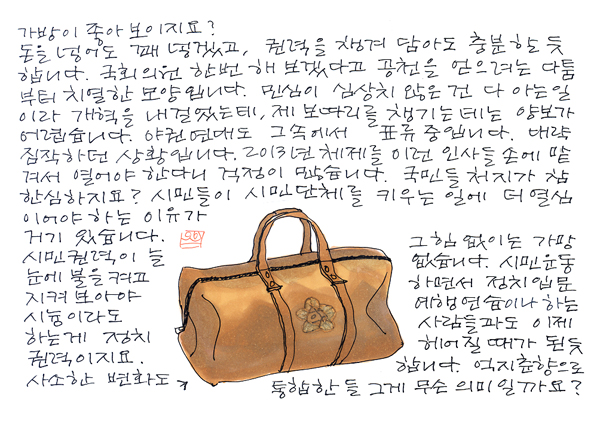 가방이 좋아 보이지요?
돈을 넣어도 꽤 넣겠고, 권력을 챙겨 담아도 충분할 듯
합니다. 국회의원 한번 해 보겠다고 공천을 얻으려는 다툼
부터 치열한 모양입니다. 민심이 심상치 않은 건 다 아는 일
이라 개혁을 내걸었는데, 제 보따리를 챙기는 데는 양보가
어렵습니다. 야권연대도 그 속에서 표류 중입니다. 대략
짐작하던 상황입니다. 2013년 체제를 이런 인사들 손에 맡
겨서 열어야 한다니 걱정이 많습니다. 국민들 처지가 참
한심하지요? 시민들이 시민단체를 키우는 일에 더 열심
이어야 하는 이유가
거기 있습니다.
시민권력이 늘
눈에 불을 켜고
지켜보아야
시늉이라도
하는게 정치
권력이지요.
사소한 변화도
그 힘 없이는 가망
없습니다. 시민운동
하면서 정치입문
예행연습이나 하는
사람들과도 이제
헤어질 때가 된 듯
합니다. 억지춘향으로
통합한들 그게 무슨 의미일까요?